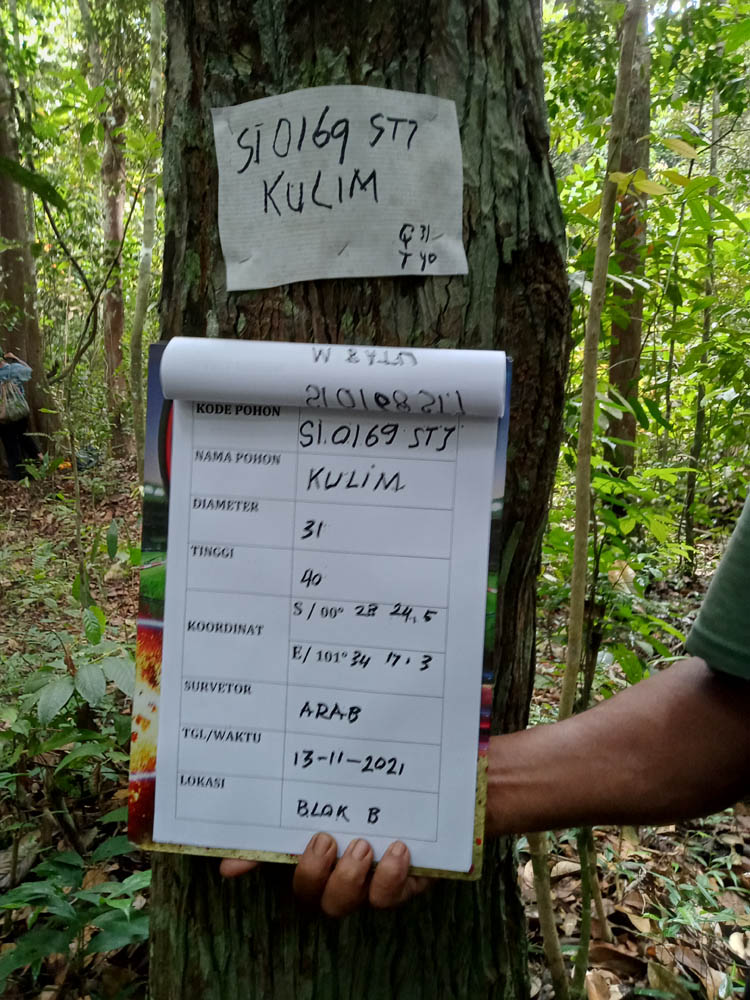 SI 0169 STJ
KULIM
G 31
T 40
KODE POHON SI.0169 STJ
NAMA POHON KULIM
DIAMETER 31
TINGGI 40
KOORDINAT S / 00° 28 24,5
E/ 101° 34 17.3
SURVETOR ARAB
TGL/WAKTU 13-11-2021
LOKASI BLOK B